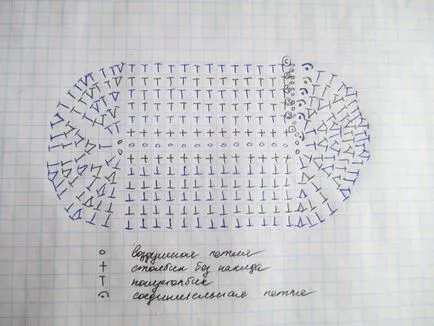 o воздушная петля
+ столбик без накида
T полустолбик
соединительная петля